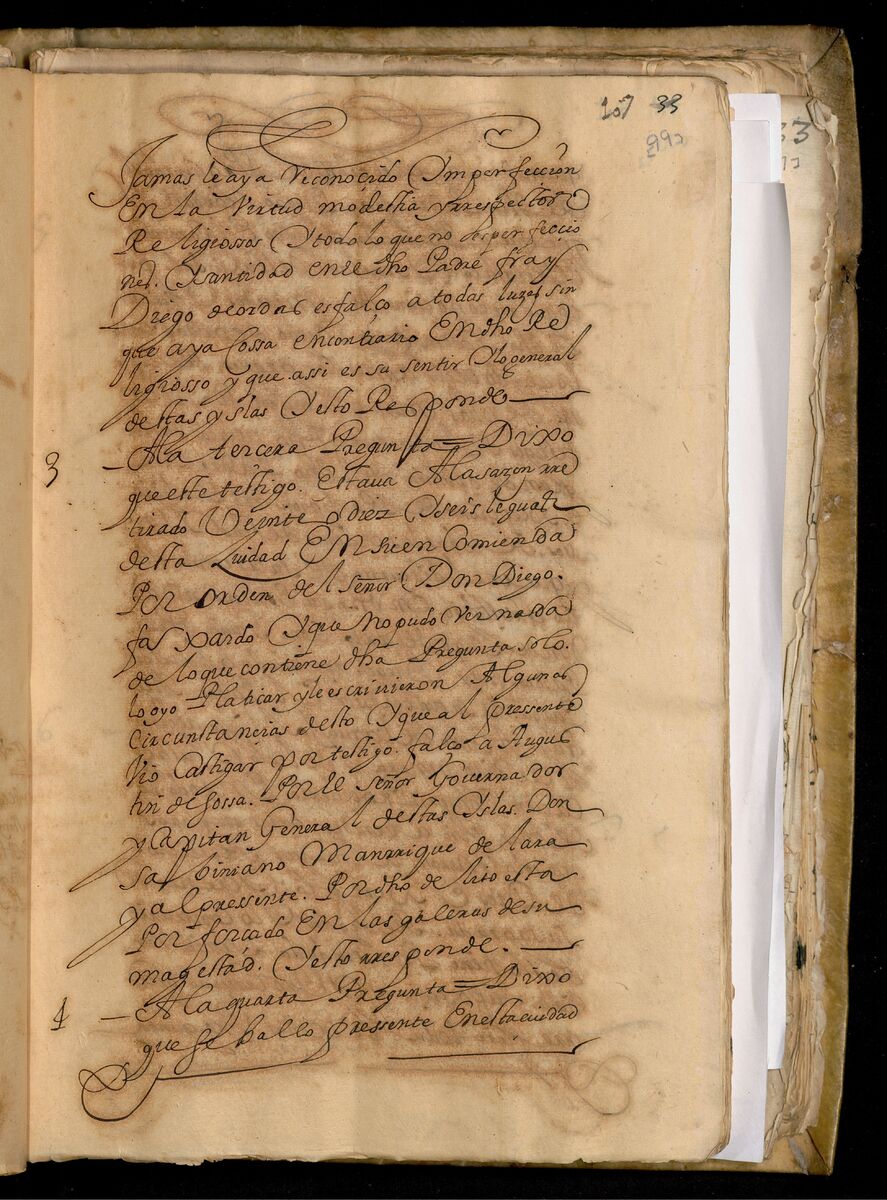 107 33
992
Jamas le aya Reconocido Ymperfeccion
En la Virtud modestia y rrespectos
Religiossos Y todo lo que no es perfeccio
nes. Y santidad en el dho Padre fray
Diego de cordas es falço a todas luzes sin
que aya Cossa en contrario En dho Re
ligiosso y que assi es su sentir Y lo general
destas yslas Y esto Responde
3 A la tercera Pregunta = Dixo
que este testigo. Estava A la sazon rre
tirado Veinte o diez Y seis leguas
desta Ziudad En su en Comienda
Por orden del señor Don Diego.
faxardo Y que No pudo Ver nada
de lo que contiene dha Pregunta solo.
lo oyo Platicar y le escrivieron Algunas
Circunstancias desto Y que al pressente
Vio Castigar por testigo. falço a Augus
tin de sossa. Por el señor Governador
y Capitan General destas Yslas. Don
sabiniano Manrrique de lara
y al pressente. Por dho delito esta
Por forçado En las galeras de su
magestad. Y esto rresponde.
4 A la quarta Pregunta = Dixo
que se hallo pressente En esta ciudad